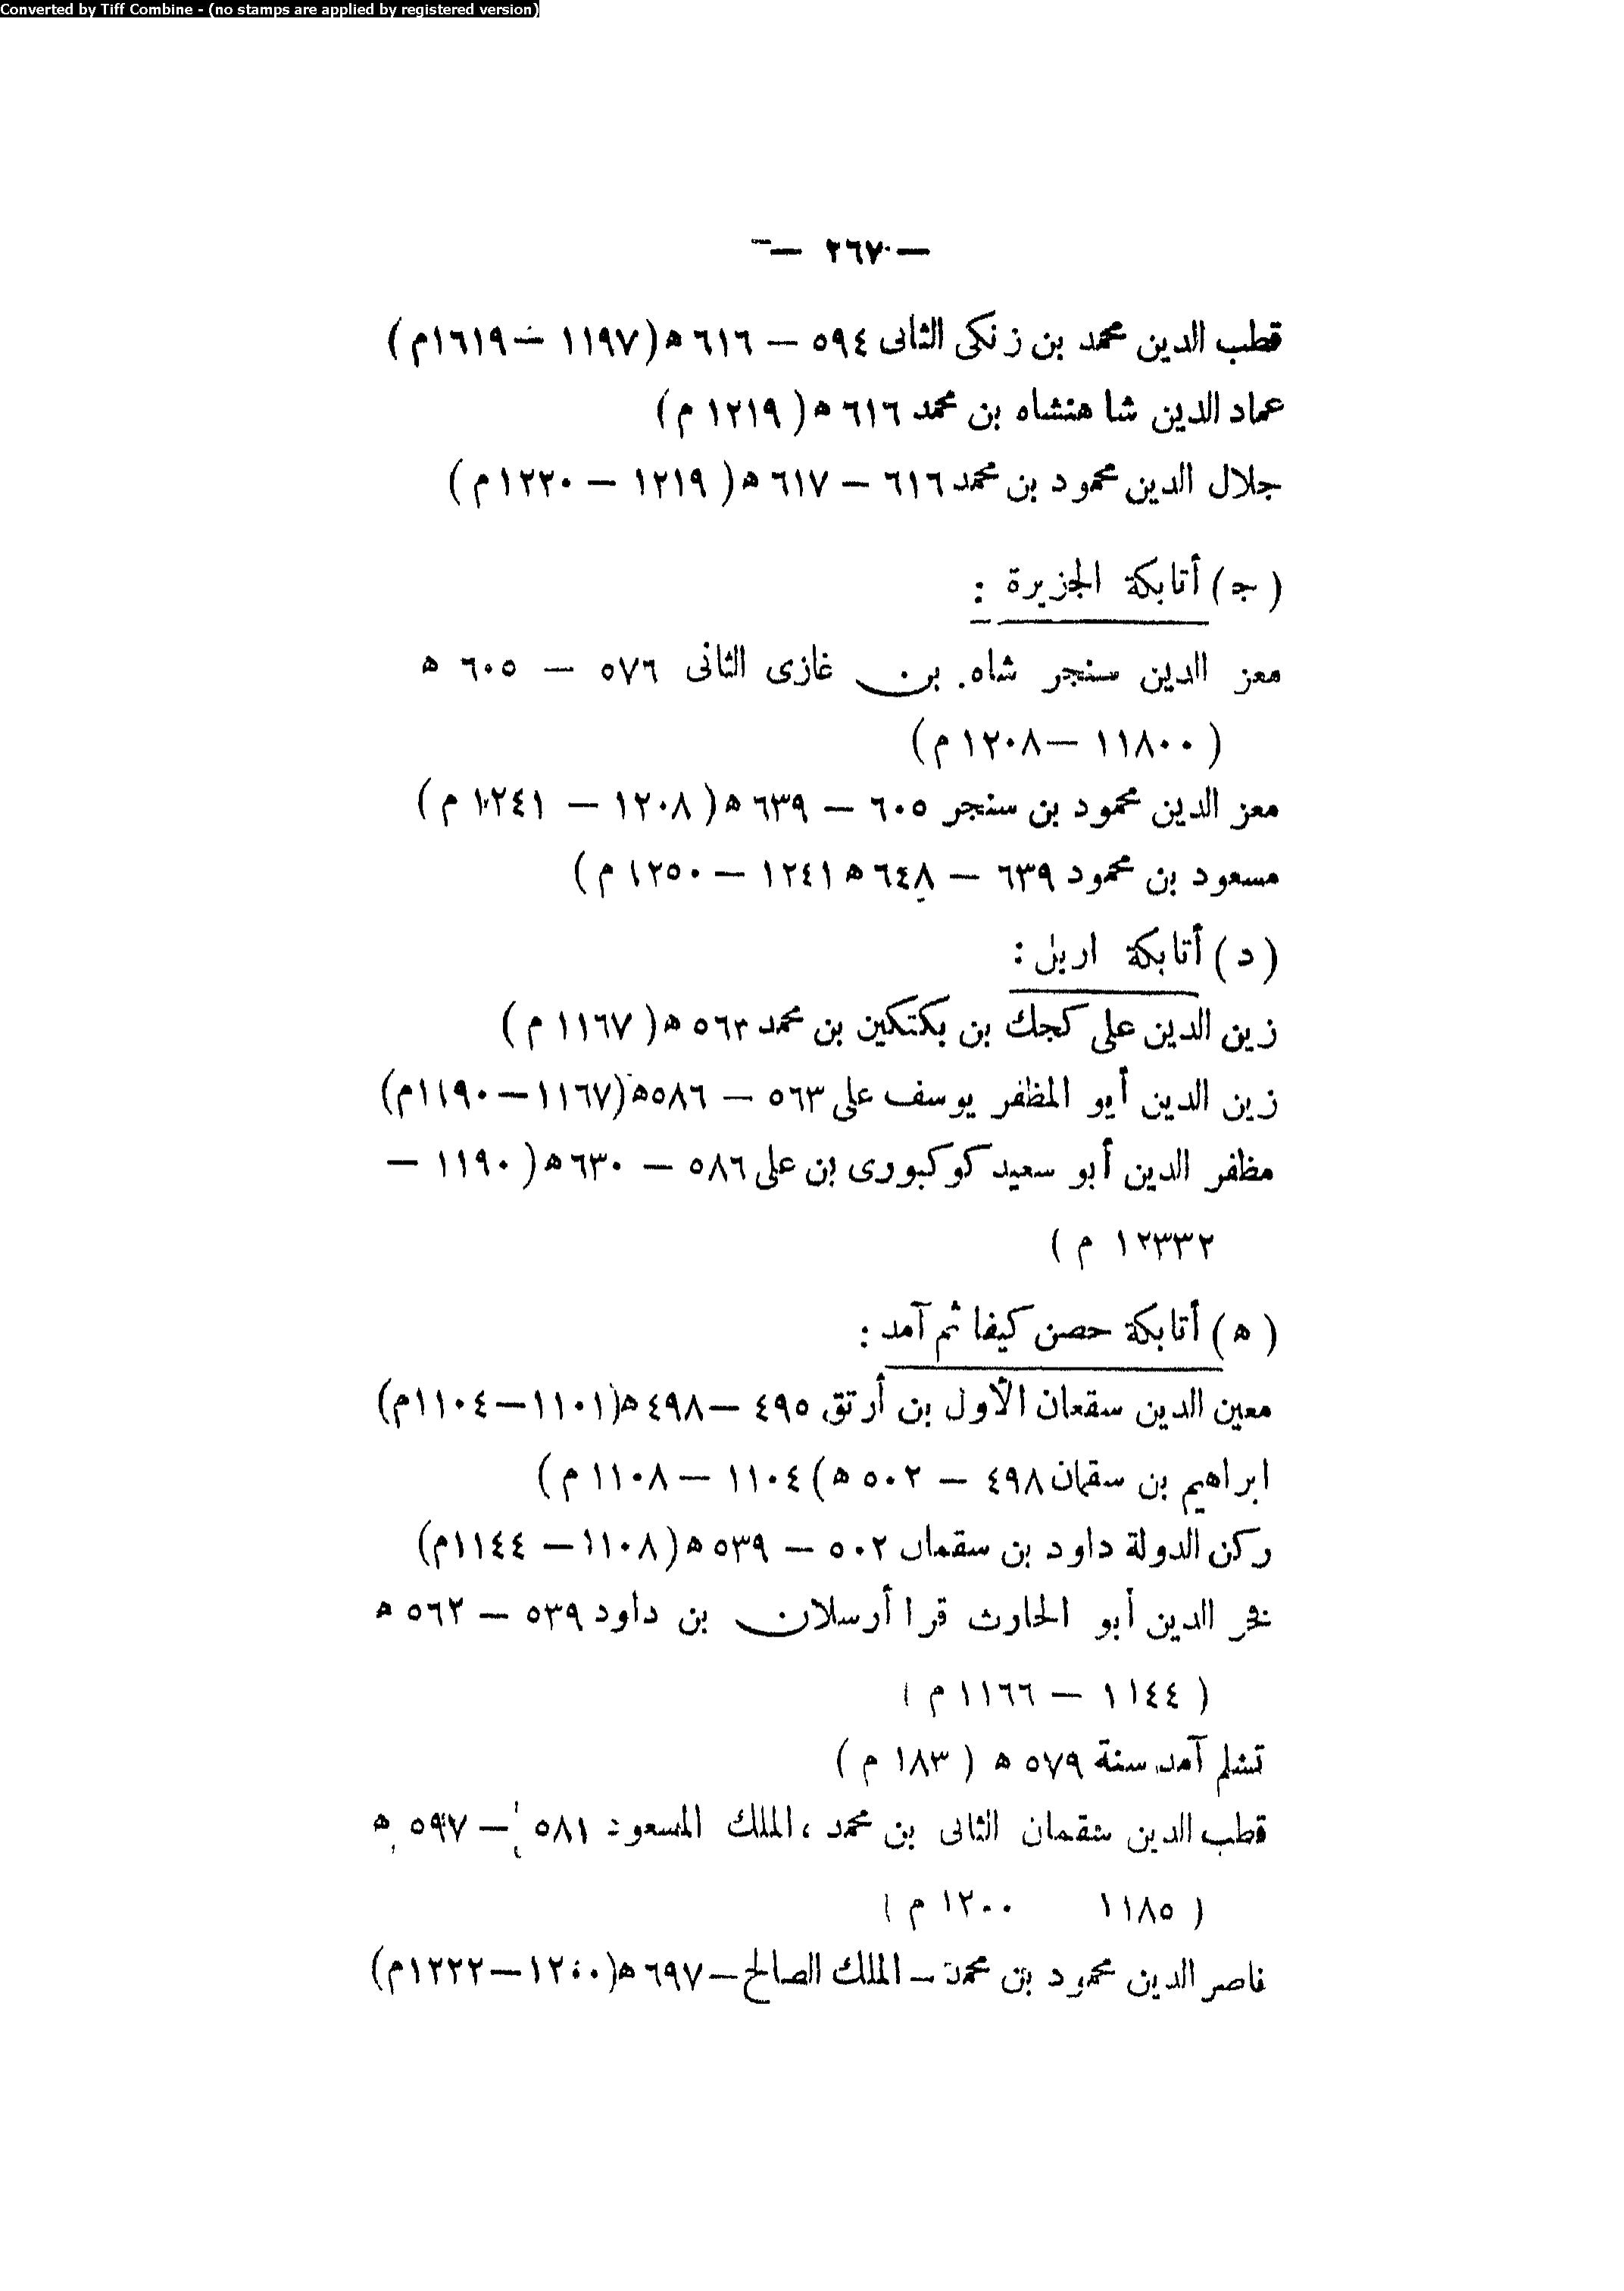 Converted by Tiff Combine - (no stamps are applied by registered version)
— ٢٦٧ —
قطب الدين محمد بن زنكى الثانى ٥٩٤ — ٦١٦ ه (١١٩٧ — ١٦١٩م)
عماد الدين شاهنشاه بن محمد ٦١٦ ه (١٢١٩ م)
جلال الدين محمود بن محمد ٦١٦ — ٦١٧ ه (١٢١٩ — ١٢٢٠م)
(ج) أتابكة الجزيرة :
معز الدين سنجر شاه. بن غازى الثانى ٥٧٦ — ٦٠٥ ه
(١١٨٠٠ — ١٢٠٨ م)
معز الدين محمود بن سنجر ٦٠٥ — ٦٣٩ ه (١٢٠٨ — ١٢٤١ م)
مسعود بن محمود ٦٣٩ — ٦٤٨ ه ١٢٤١ — ١٢٥٠ م)
(د) أتابكة اربل :
زين الدين على كجك بن بكتكين بن محمد ٥٦٣ ه (١١٦٧ م)
زين الدين أيو المظفر يوسف على ٥٦٣ — ٥٨٦ه (١١٦٧ — ١١٩٠م)
مظفر الدين أبو سعيد كوكبورى بن على ٥٨٦ — ٦٣٠ ه (١١٩٠ —
١٢٣٣٢ م)
(ه) أتابكة حصن كيفا ثم آمد :
معين الدين سقعان الأول بن أرتق ٤٩٥ — ٤٩٨ ه (١١٠١ — ١١٠٤م)
ابراهيم بن سقمان ٤٩٨ — ٥٠٢ ه) ١١٠٤ — ١١٠٨ م)
ركن الدولة داود بن سقمان ٥٠٢ — ٥٣٩ ه (١١٠٨ — ١١٤٤م)
فخر الدين أبو الحارث قرا أرسلان بن داود ٥٣٩ — ٥٦٢ ه
(١١٤٤ — ١١٦٦ م)
تشلم آمد سنة ٥٧٩ ه (١٨٣ م)
قطب الدين سقمان الثانى بن محمد ، الملك المسعود ٥٨١ — ٥٩٧ ه
(١١٨٥ ١٢٠٠ م)
ناصر الدين محمود بن محمد — الملك الصالح — ٦٩٧ ه (١٢٠٠ — ١٢٢٢م)